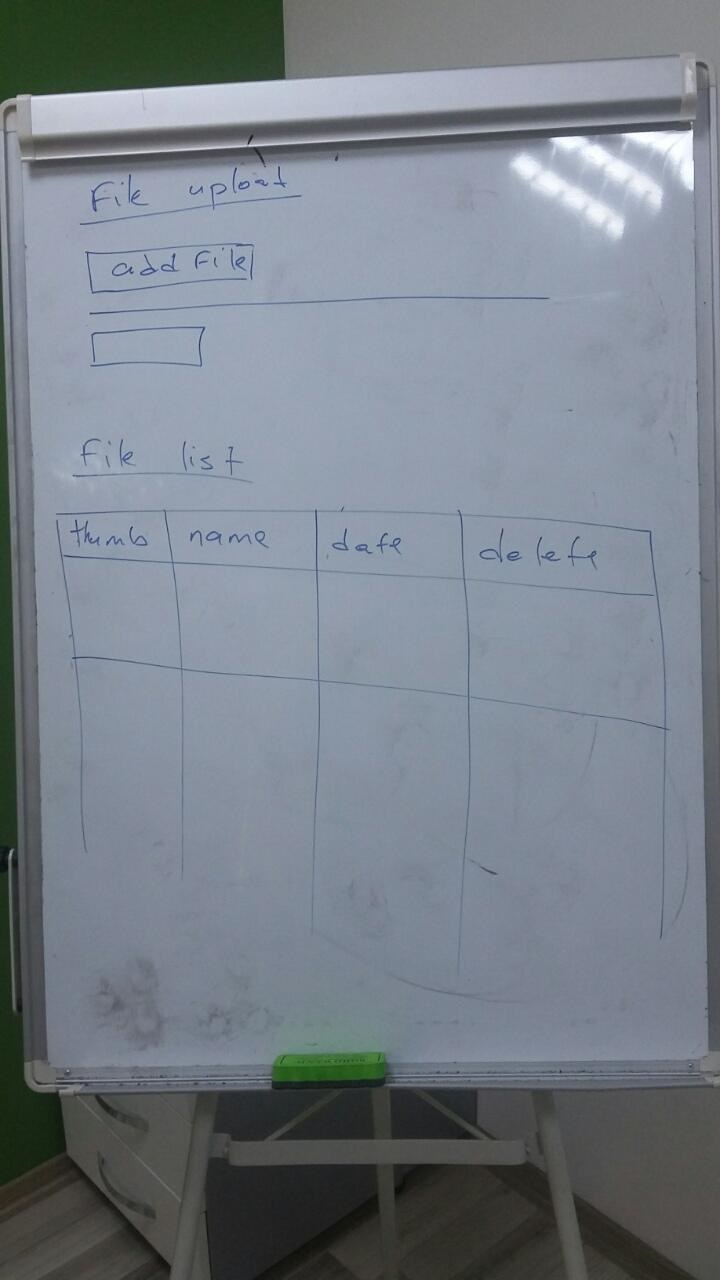 File upload
add File
File list
thumb name date delete